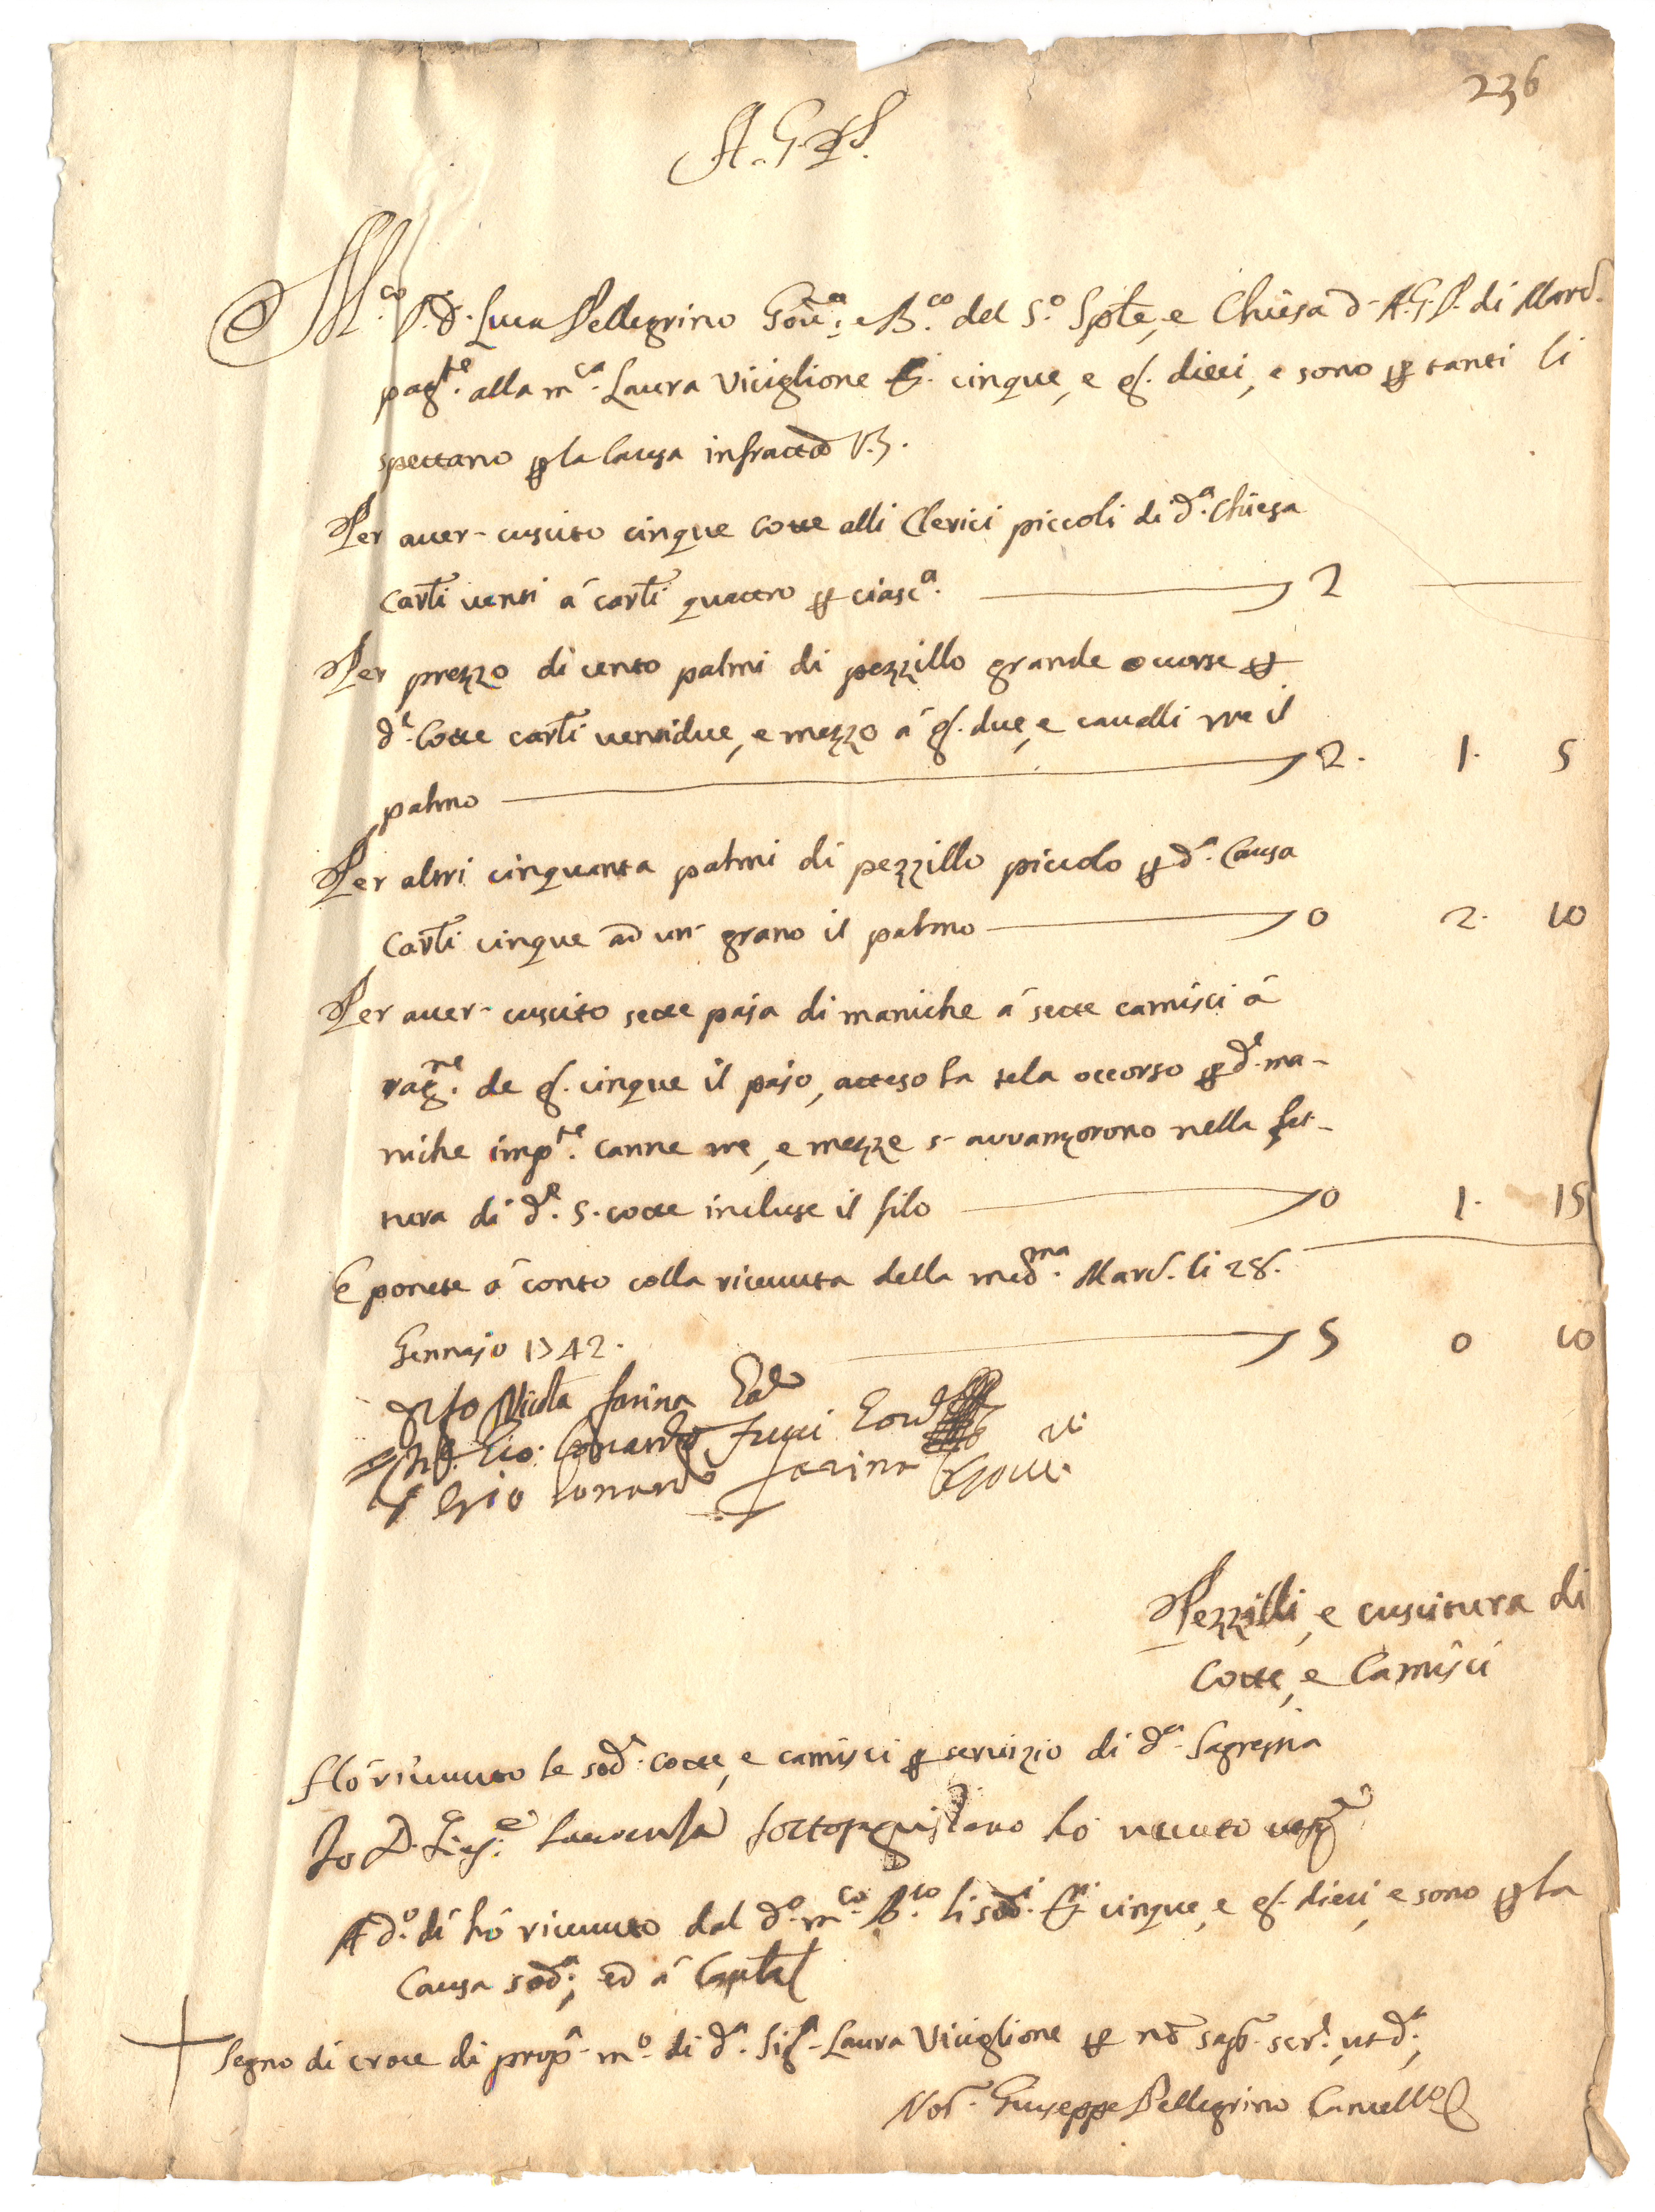 236
A.G.P.
M.co S.D. Luca Pellegrino Gov.e e B.co del S.o Sple, e Chiesa d- A.G.P. di Marc.
pag.te alla m.ca Laura Viciglione cinque, e g. dieci, e sono per tanti li
spettano per la causa infractto V3.
Per aver- cuscito cinque cotte alli Clerici piccoli di d.a Chiesa
Carli venti á carli quattro per ciasc.a 2
Per prezzo di cento palmi di pezzillo grande occorse per
d.e Cotte carli ventidue, e mezzo á g. due, e cavalli tre il
palmo 2. 1. 5
Per altri cinquanta palmi di pezzillo piccolo per d.a Causa
Carli cinque ad un- grano il palmo 0 2. 10
Per aver- cuscito sette paja di maniche á sette camisci á
rag.ne de g. cinque il pajo, atteso la tela occorso per d.e ma-
niche imp.te canne tre, e mezze s- avvanzorono nella fat-
tura di d.e 5. cotte incluse il filo 0 1. 15
E ponete á conto colla ricevuta della med.ma Marc. li 28.
Gennajo 1742. 5 0 10
Nicola farina
Gio: Lonardo
Gio Lonardo farina
Pezzilli, e cuscitura di
Cotte, e Camisci
Hó ricevuto le sod.e cotte, e camisci per servizio di d.a Sagrestia
Io D. hó
A d.o dí hó ricevuto dal d.o m.co B.co li sod.i cinque, e g. dieci, e sono per la
Causa sod.a, ed á
+ Segno di croce di prop.a m.o di d.a Sig.a Laura Viciglione per nō sap.r scr.e, ut d.a,
Not.r Giuseppe Pellegrino Canvell.o